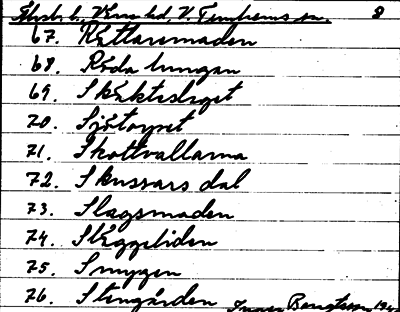 Älvsb. l., V. Tunhems sn. 8
67. Rättaremaden
68. Röda lungan
69. Skäktesleget
70. Sjötorpet
71. Skottvallarna
72. Skussars dal
73. Slagsmaden
74. Släggeliden
75. Smygen
76. Stengården Bengtsson